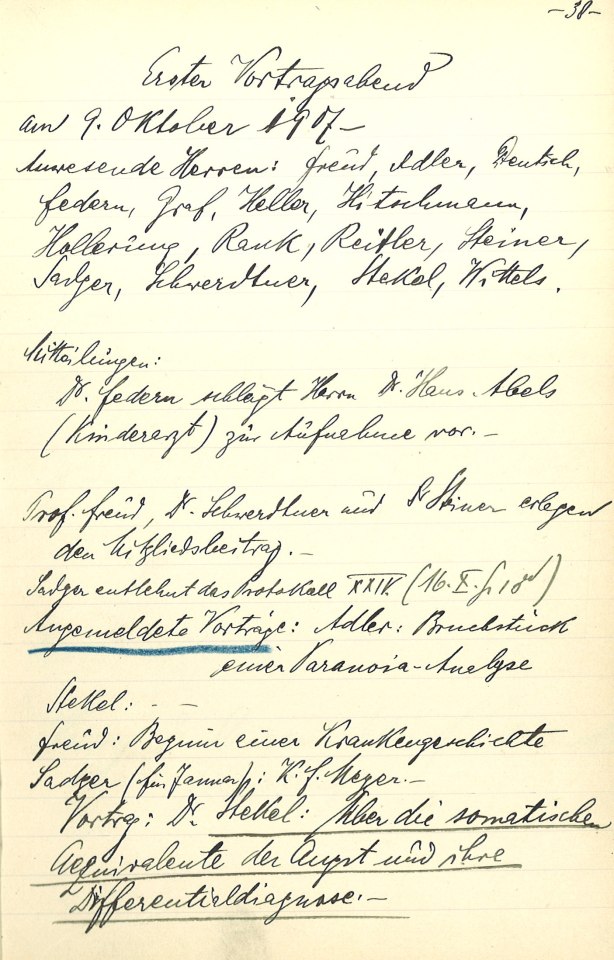 -38-
Erster Vortragsabend
am 9. Oktober 1907 -
Anwesende Herren: Freud, Adler, Deutsch,
Federn, Graf, Heller, Hitschmann,
Hollerung, Rank, Reitler, Steiner,
Sadger, Schwerdtner, Stekel, Wittels.
Mitteilungen:
Dr. Federn schlägt Herrn Dr. Hans Abels
(Kinderarzt) zur Aufnahme vor. -
Prof. Freud, Dr. Schwerdtner und Dr Steiner erlegen
den Mitgliedsbeitrag. -
Sadger entlehnt das Protokoll XXIV. (16. X.
Angemeldete Vorträge: Adler: Bruchstück
einer Paranoia-Analyse
Stekel: - -
Freud: Beginn einer Krankengeschichte
Sadger (für Januar): K. F. Meyer. -
Vortrag: Dr. Stekel: Über die somatischen
Aequivalente der Angst und ihre
Differentialdiagnose. -